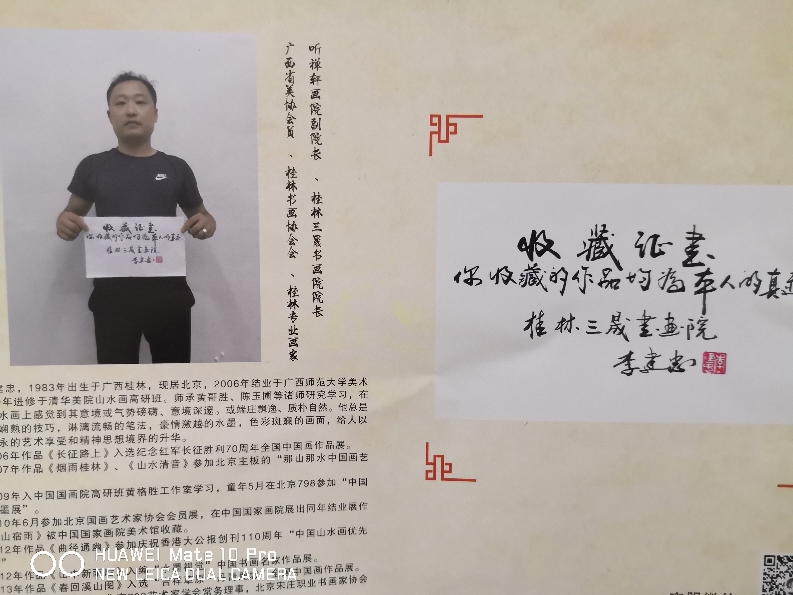 听禅轩画院副院长 、桂林三晟书画院院长
广西省美协会员 、桂林书画协会会 、桂林专业画家
收藏证书
你收藏的作品均为本人的真
桂林三晟書画院
李建忠
收藏证书
你收藏的作品均为本人的真
桂林三晟書画院
李建忠
忠，1983年出生于广西桂林，现居北京，2006年结业于广西师范大学美术
年进修于清华美院山水画高研班。师承黄哥胜、陈玉圃等诸师研究学习，在
水画上感觉到其意境或气势磅礴、意境深邃。或端庄飘逸、质朴自然。他总是
娴熟的技巧，淋漓流畅的笔法，豪情激越的水墨，色彩斑斓的画面，给人以
永的艺术享受和精神思想境界的升华。
06年作品《长征路上》入选纪念红军长征胜利70周年全国中国画作品展。
07年作品《烟雨桂林》、《山水清音》参加北京主板的“那山那水中国画艺
09年入中国国画院高研班黄格胜工作室学习，童年5月在北京798参加“中国
墨展”。
10年6月参加北京国画艺术家协会会员展，在中国国家画院展出同年结业展作
山宿雨》被中国国家画院美术馆收藏。
12年作品《曲径通幽》参加庆祝香港大公报创刊110周年“中国山水画优先
12年作品
中国书画名家作品展。
13年作品《春回溪山阅》入选
全国中国画作品展。
艺术家学会常务理事，北京宋庄职业书画家协会
HUAWEI Mate 10 Pro
NEW LEICA DUAL CAMERA